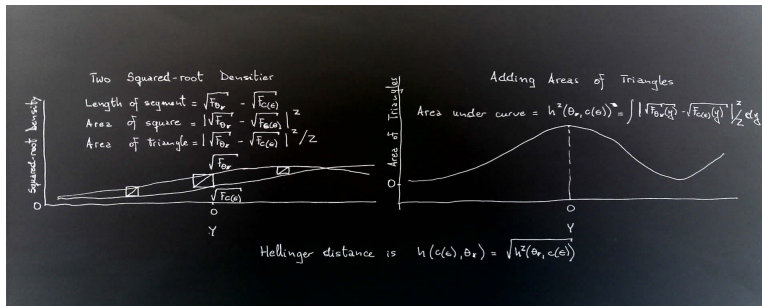 Two Squared-root Densitier
Length of segment = √F_θ* - √F_C(ϵ)
Area of square = |√F_θ* - √F_C(ϵ)|²
Area of triangle = |√F_θ* - √F_C(ϵ)|²/2
Squared-root Density
√F_θ*
√F_C(ϵ)
0
0
Y
Adding Areas of Triangles
Area under curve = h²(θ*, c(ϵ)) = ∫ |√F_θ*(y) - √F_C(ϵ)(y)|²/2 dy
Area of Triangles
0
0
Y
Hellinger distance is h(c(ϵ), θ*) = √h²(θ*, c(ϵ))